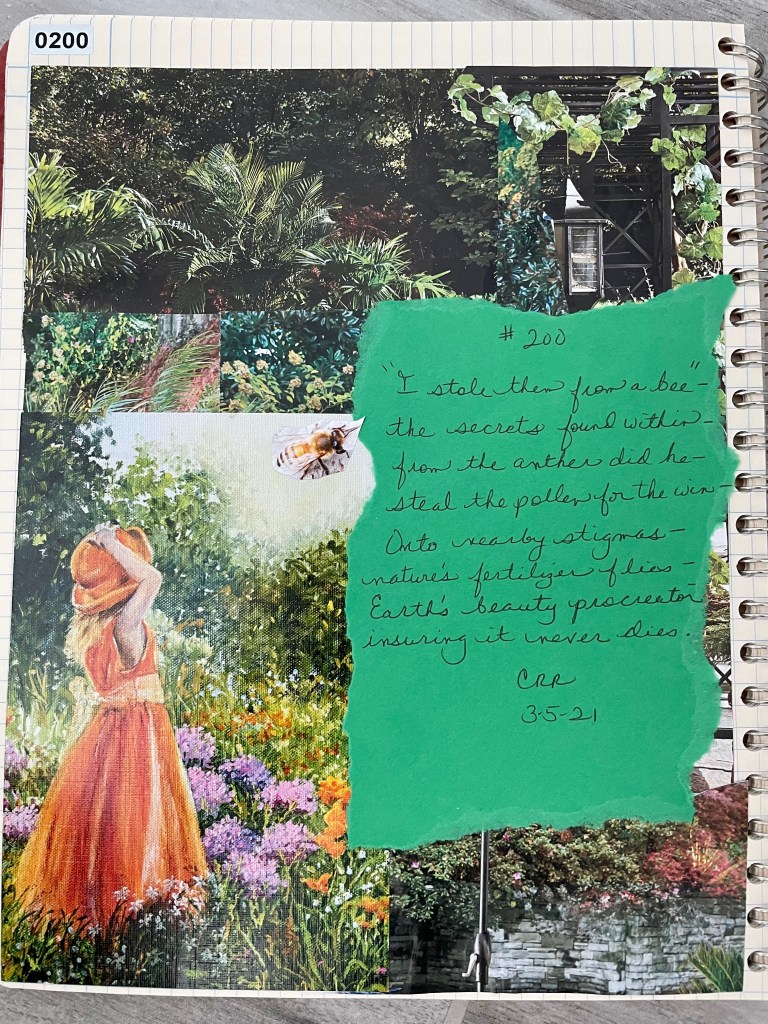 0200
# 200
"I stole them from a bee" -
the secrets found within -
from the anther did he -
steal the pollen for the win -
Onto nearby stigmas -
nature's fertilizer flies -
Earth's beauty procreator
insuring it never dies.
CRR
3-5-21